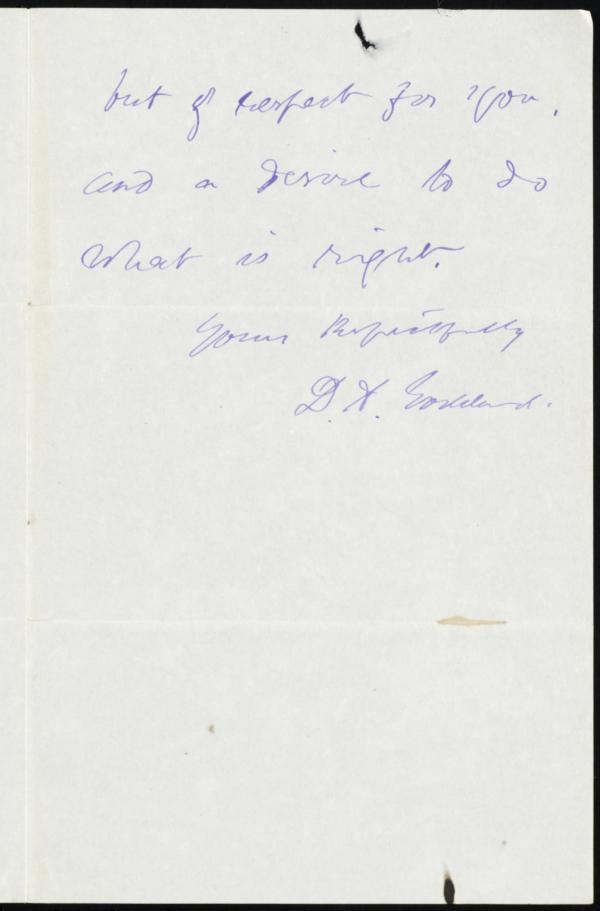 but of respect for you,
and a desire to do
what is right.
Yours Respectfully
D. A. Goddard.